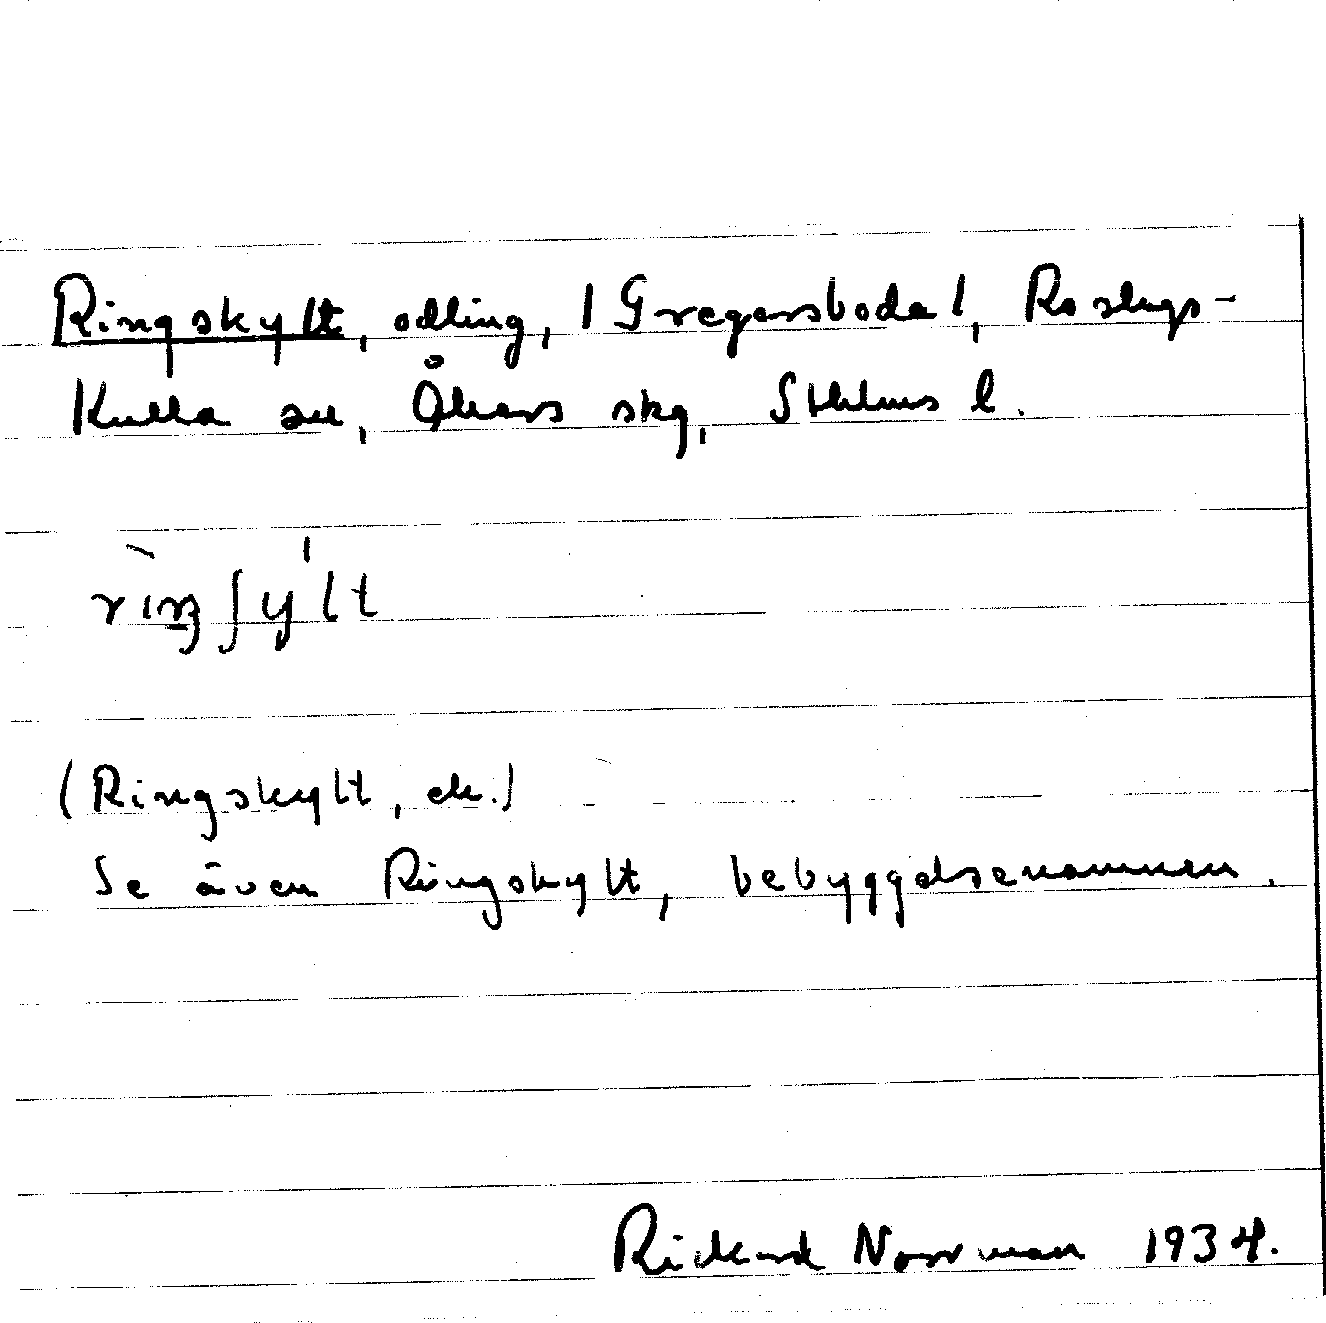 Ringskylt, odling, /Gregersboda/, Roslags-
Kulla sn, Åkers skg, Sthlms l.
rìŋʃy'lt
(Ringskylt, ek.)
Se även Ringskylt, bebyggelsenamnen.
Rickard Norrman 1934.